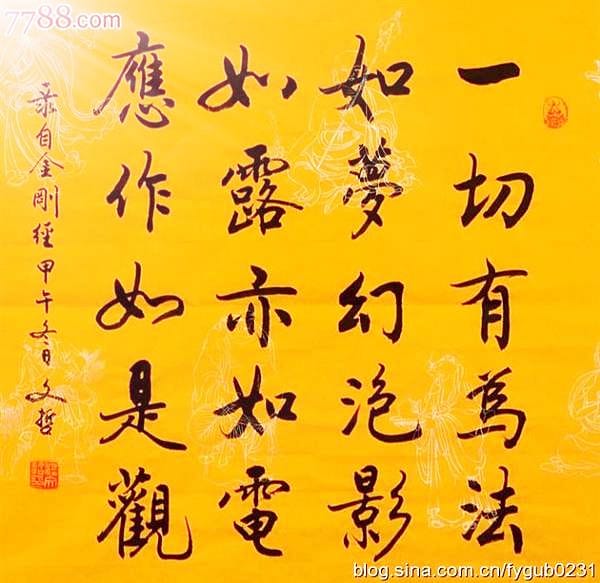 7788.com
一切有為法
如夢幻泡影
如露亦如電
應作如是觀
录自金剛經甲午冬日文哲
blog.sina.com.cn/fygub0231